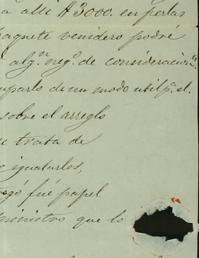 a alli $3000. en perlas
paquete venidero podre
alg.n neg.o de consideración
de un modo util p.a el
sobre el arreglo
se trata de
igualarlos,
fué papel
ministro que lo